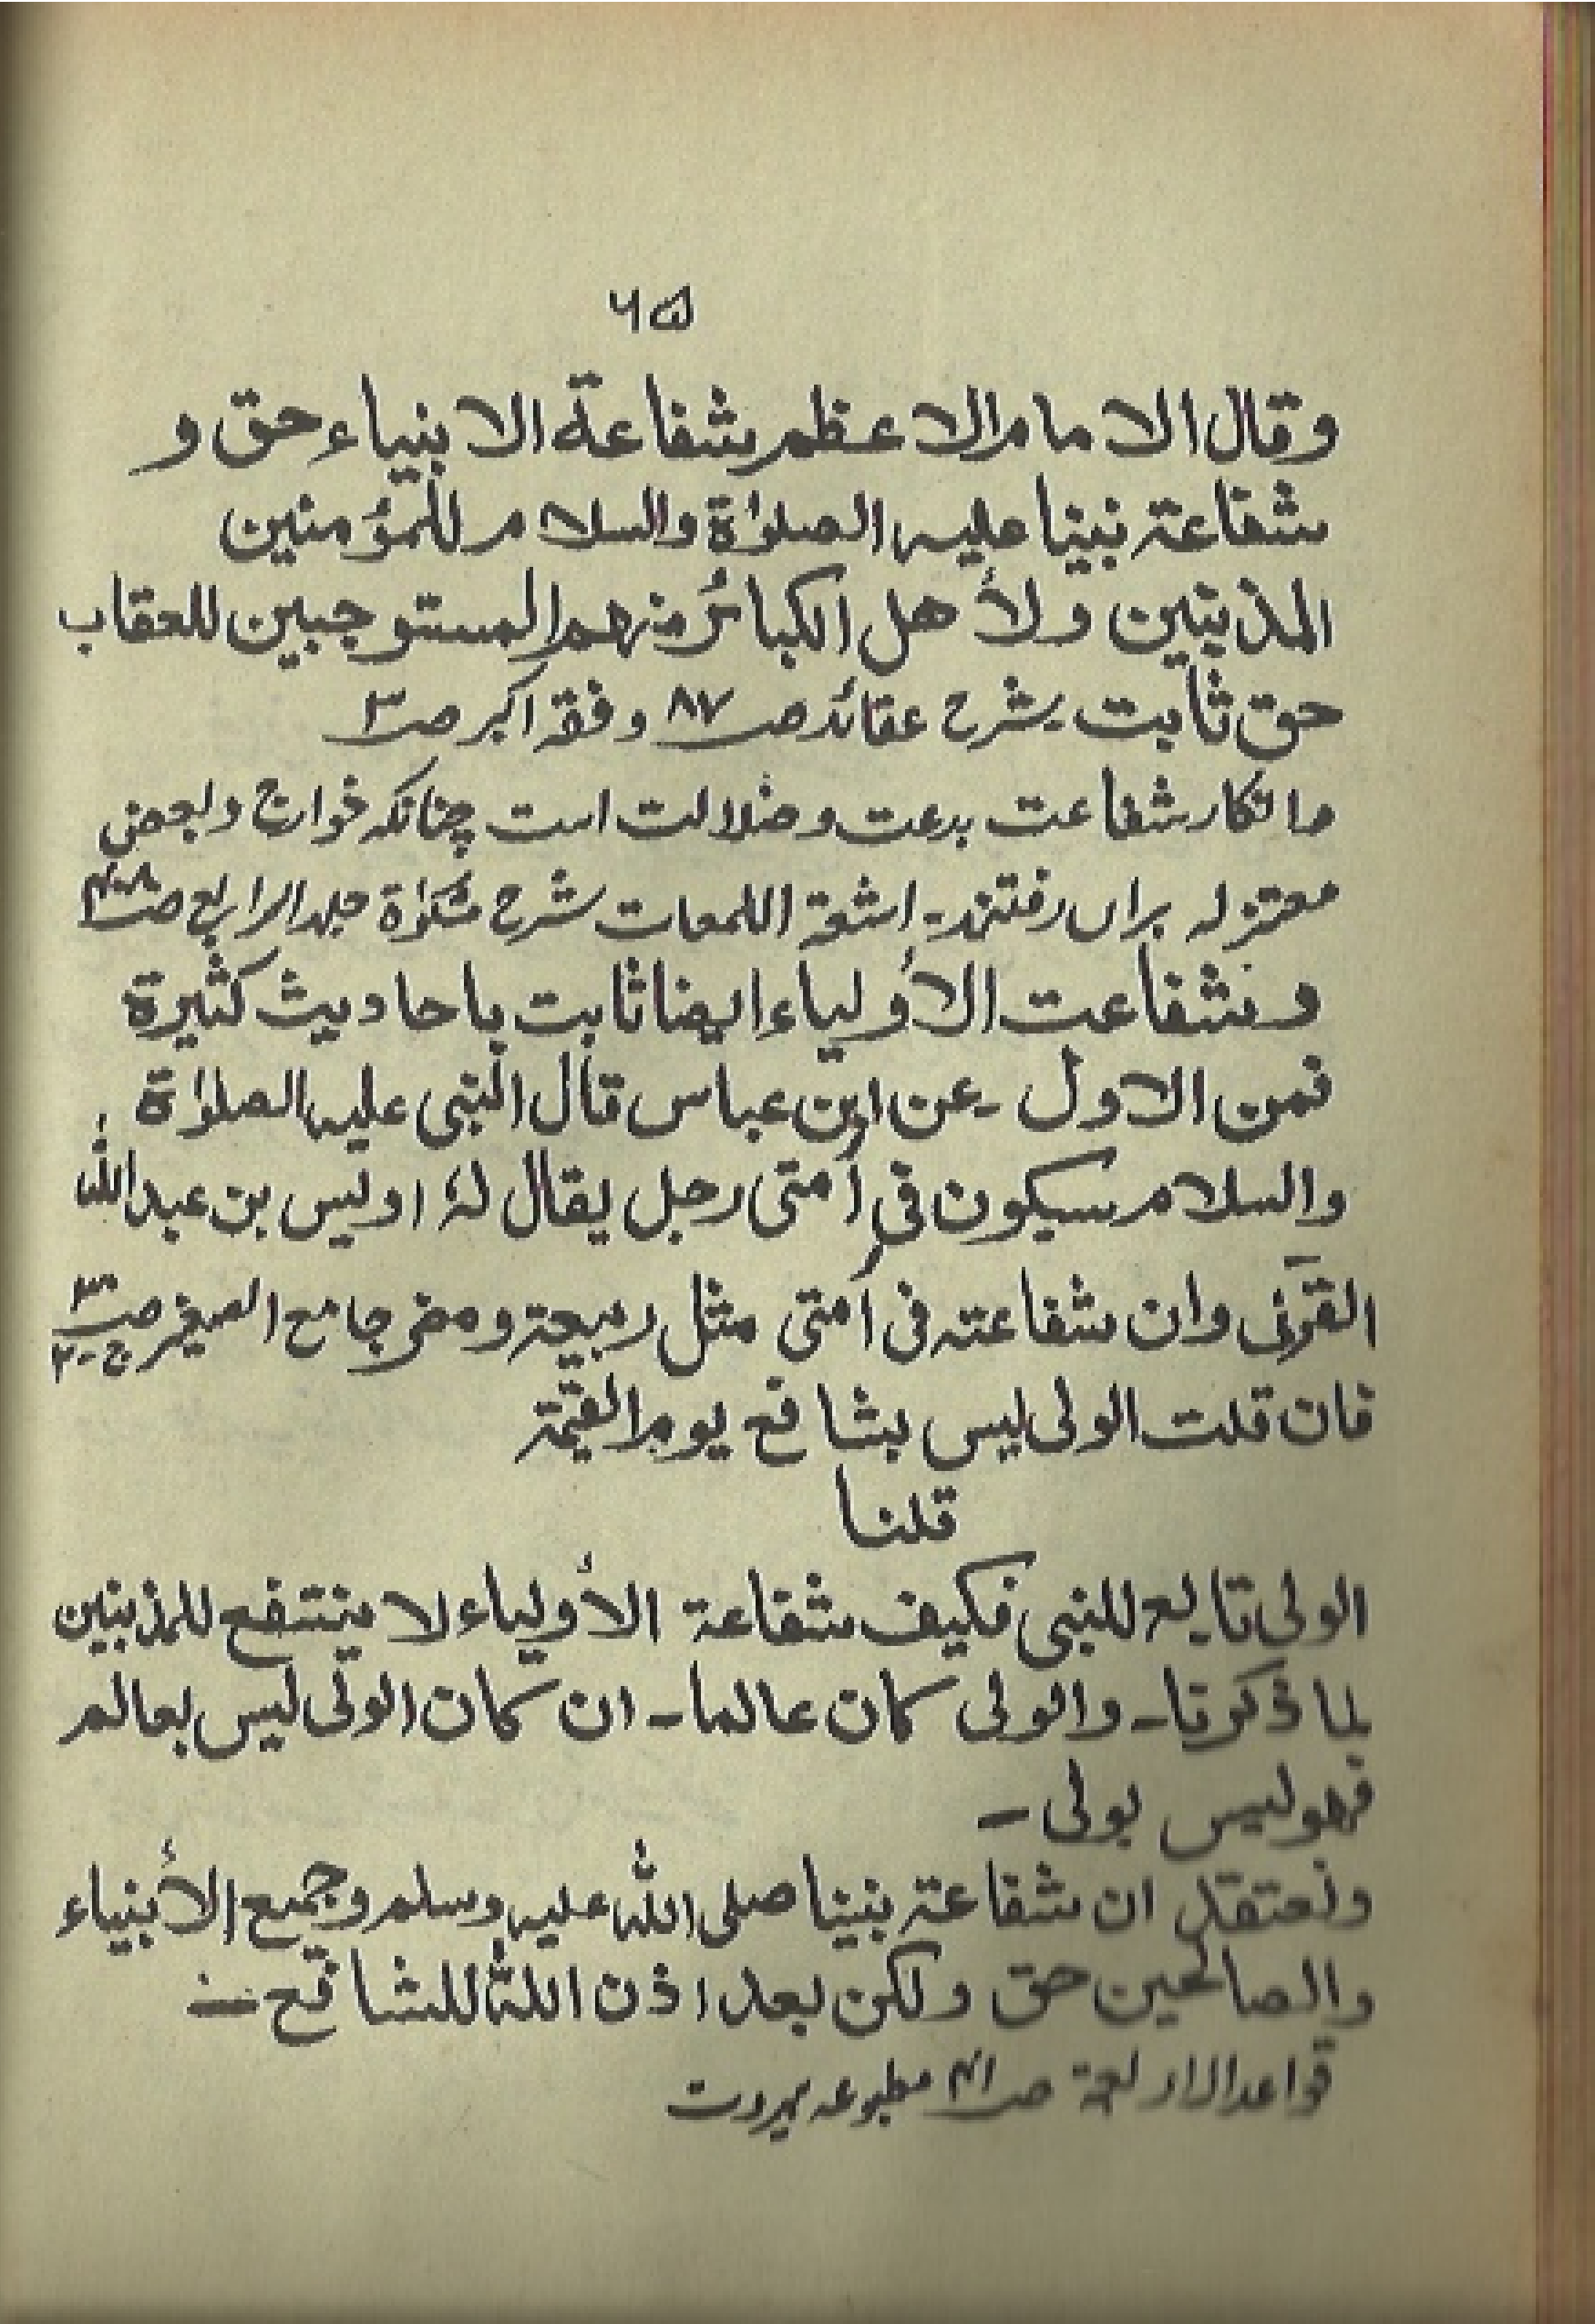 ٦۵
وقال الامام الاعظم شفاعة الانبياء حق و
شفاعة نبينا عليه الصلوٰة والسلام للمؤمنين
المذنبين ولأهل الكبائر منهم المستوجبين للعقاب
حق ثابت۔ شرح عقائد صـ ۸۷ وفقه اكبر صـ ۳
وانکار شفاعت بدعت وضلالت است چنانکہ خوارج وبعض
معتزلہ براں رفتند۔ اشعة اللمعات شرح مشکوٰة جلد الرابع صـ ۴۰۸
وشفاعت الأولياء ايضا ثابت باحاديث كثيرة
فمن الاول ۔ عن ابن عباس قال النبى عليه الصلوٰة
والسلام سيكون فى أمتى رجل يقال لهٗ اويس بن عبدالله
القرنى وان شفاعته فى أمتى مثل ربيعة ومضر جامع الصغير صـ ۳۰ ج ۲
فان قلت الولى ليس بشافع يوم القيٰمة
قلنا
الولى تابع للنبى فكيف شفاعة الأولياء لا ينتفع للمذنبين
لما ذكرنا ۔ والولى كان عالما ۔ ان كان الولى ليس بعالم
فهو ليس بولى ۔
ونعتقد ان شفاعة نبينا صلى الله عليه وسلم وجميع الأنبياء
والصالحين حق ولكن بعد اذن الله للشافع ۔
قواعد الاربعة صـ ۴۱ مطبوعه بيروت